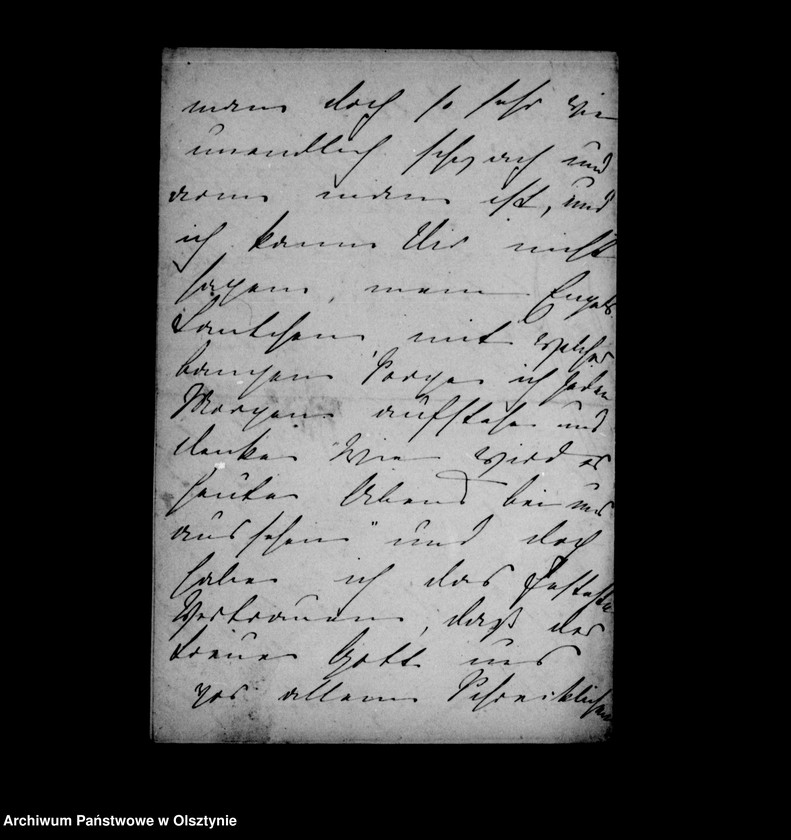 man doch so sehr wie
unendlich schwach und
arm man ist, und
ich kann Dir nicht
sagen, mein Engels
Tantchen, mit welcher
bangen Sorge ich jeden
Morgen aufstehe und
denke "Wie wird es
heute Abend bei uns
aussehen" und doch
habe ich das festeste
Vertrauen, daß der
treue Gott uns
vor allem Schrecklichen
Archiwum Państwowe w Olsztynie